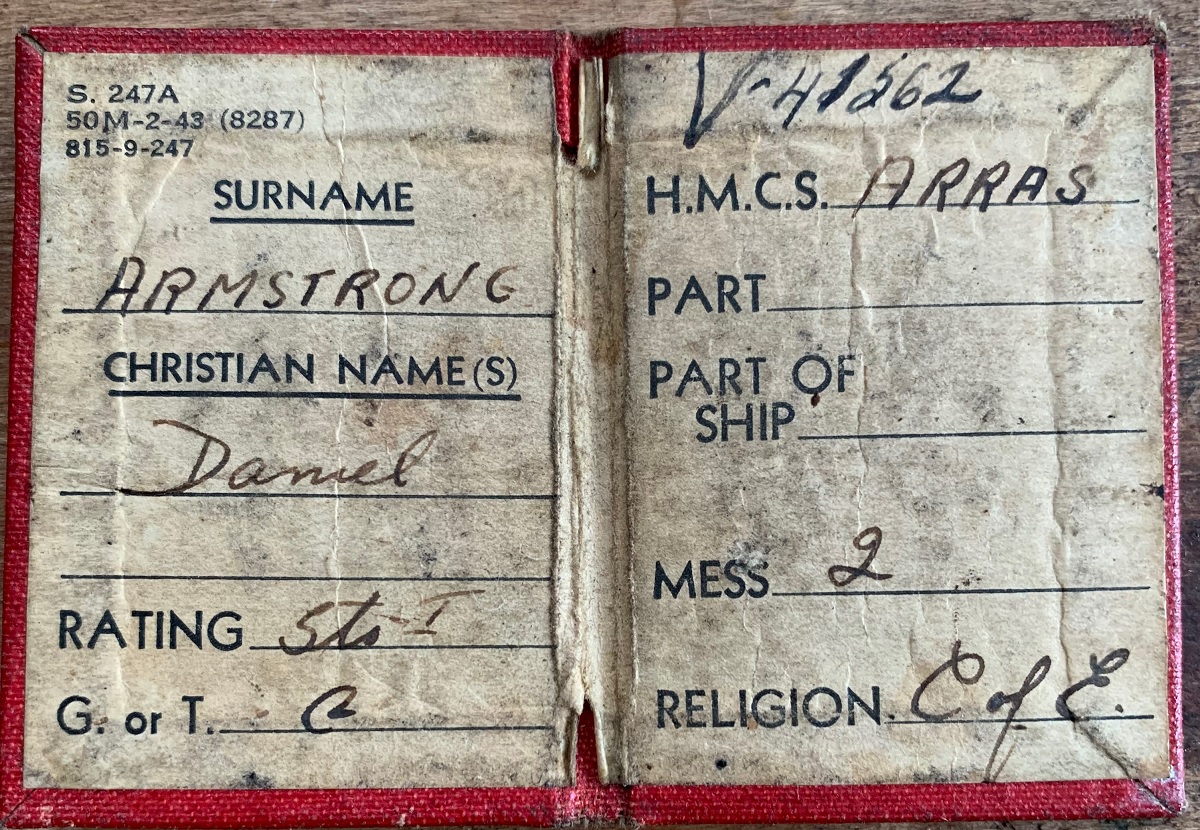 S. 247A
50M-2-43 (8287)
815-9-247
SURNAME
ARMSTRONG
CHRISTIAN NAME(S)
Daniel
RATING Sto I
G. or T. G
V-41562
H.M.C.S. ARRAS
PART
PART OF
SHIP
MESS 2
RELIGION. C of E.